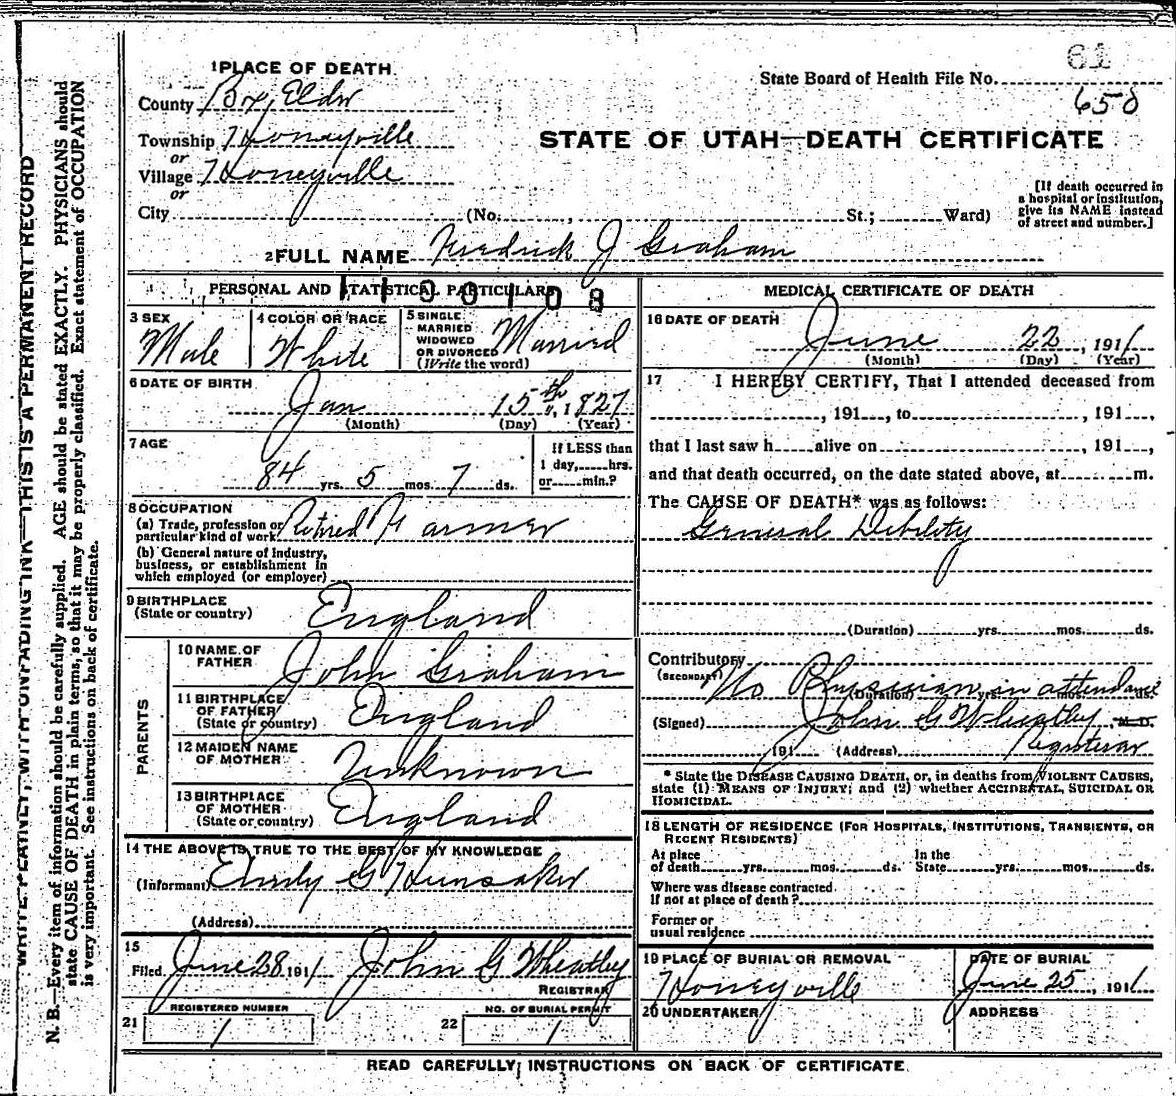 WRITE PLAINLY, WITH UNFADING INK—THIS IS A PERMANENT RECORD
N. B.—Every item of information should be carefully supplied. AGE should be stated EXACTLY. PHYSICIANS should
state CAUSE OF DEATH in plain terms, so that it may be properly classified. Exact statement of OCCUPATION
is very important. See instructions on back of certificate.
61
State Board of Health File No. 650
1 PLACE OF DEATH
County Box Elder
Township Honeyville
or
Village Honeyville
or
City (No. , St.; Ward)
STATE OF UTAH—DEATH CERTIFICATE
[If death occurred in
a hospital or institution,
give its NAME instead
of street and number.]
2 FULL NAME Fredrick J Graham
PERSONAL AND STATISTICAL PARTICULARS
3 SEX
Male
4 COLOR OR RACE
White
5 SINGLE
MARRIED
WIDOWED
OR DIVORCED
(Write the word)
Married
6 DATE OF BIRTH
Jan 15th, 1827
(Month) (Day) (Year)
7 AGE
84 yrs. 5 mos. 7 ds.
If LESS than
1 day, hrs.
or min.?
8 OCCUPATION
(a) Trade, profession or
particular kind of work Retired Farmer
(b) General nature of industry,
business, or establishment in
which employed (or employer)
9 BIRTHPLACE
(State or country) England
10 NAME OF
FATHER John Graham
PARENTS
11 BIRTHPLACE
OF FATHER
(State or country) England
12 MAIDEN NAME
OF MOTHER Unknown
13 BIRTHPLACE
OF MOTHER
(State or country) England
14 THE ABOVE IS TRUE TO THE BEST OF MY KNOWLEDGE
(Informant) G Hunsaker
(Address)
15
Filed June 28 1911 John G Wheatley
REGISTRAR
REGISTERED NUMBER
21 1
NO. OF BURIAL PERMIT
22 1
MEDICAL CERTIFICATE OF DEATH
16 DATE OF DEATH
June 22, 1911
(Month) (Day) (Year)
17 I HEREBY CERTIFY, That I attended deceased from
, 191 , to , 191 ,
that I last saw h alive on , 191 ,
and that death occurred, on the date stated above, at m.
The CAUSE OF DEATH* was as follows:
General Debility
(Duration) yrs. mos. ds.
Contributory
(SECONDARY) No Physician in attendance
(Duration) yrs. mos. ds.
(Signed) John G Wheatley M.D.
191 (Address) Registrar
* State the DISEASE CAUSING DEATH, or, in deaths from VIOLENT CAUSES,
state (1) MEANS OF INJURY; and (2) whether ACCIDENTAL, SUICIDAL OR
HOMICIDAL.
18 LENGTH OF RESIDENCE (FOR HOSPITALS, INSTITUTIONS, TRANSIENTS, OR
RECENT RESIDENTS)
At place
of death yrs. mos. ds.
In the
State yrs. mos. ds.
Where was disease contracted
If not at place of death?
Former or
usual residence
19 PLACE OF BURIAL OR REMOVAL
Honeyville
DATE OF BURIAL
June 25, 1911
20 UNDERTAKER
ADDRESS
READ CAREFULLY INSTRUCTIONS ON BACK OF CERTIFICATE